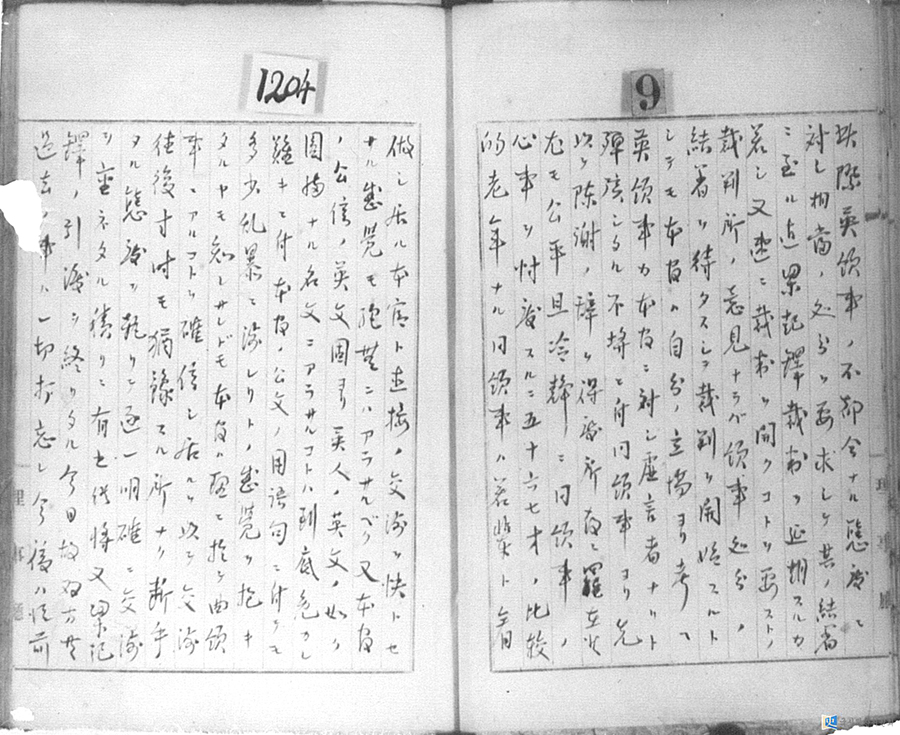 9
此際英領事ノ不都合ナル態度ニ
対し相当ノ処分ヲ要求シテ其ノ結着
ニ至ル迄累記譯裁判ヲ延期スルカ
若シ又速ニ裁判ヲ開クコトヲ要ストノ
裁判所ノ意見ナラバ領事処分ノ
結着ヲ待タスシテ裁判ヲ開始スルト
シテモ本官ハ自分ノ立場ヨリ考ヘ
英領事カ本官ニ対シ虚言者ナリト
弾シタル不埒ニ付同領事ヨリ先
以テ陳謝ノ辞ヲ得
尤モ公平且冷静ニ同領事ノ
心事ヲ忖度スルニ五十六七才ノ比較
的老年ナル同領事ハ若輩ト
1204
做シ居ル本官ト直接ノ交渉ヲ快トセ
ナル感覚モ アラサルベク又本官
ノ公信ノ英文固ヨリ英人ノ英文ノ如ク
円満ナル名文ニアラサルコトハ到底免カレ
難キニ付本官ノ公文ノ用語句ニ付テモ
多少乱暴ニ渉レリトノ感覚ヲ抱キ
タルヤモ知レサレドモ本官ハ
事ニアルコトヲ確信シ居ルヲ以テ交渉
往復寸時モ猶豫スル所ナク断乎
タル態度ヲ執リテ逐一明確ニ交渉
ヲ重ネタル積リニ有之候将又累記
譯ノ引渡ヲ終リタル今日
過去ノ事ハ一切打忘レ今後ハ従前